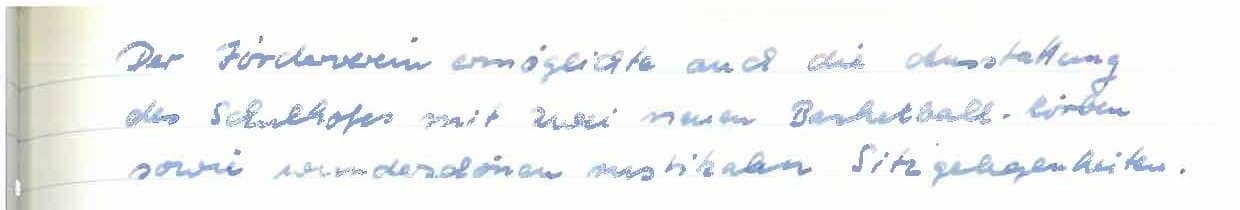 Der Förderverein ermöglichte auch die Ausstattung
des Schulhofes mit zwei neuen Basketball-körben
sowie wunderschönen rustikalen Sitzgelegenheiten.